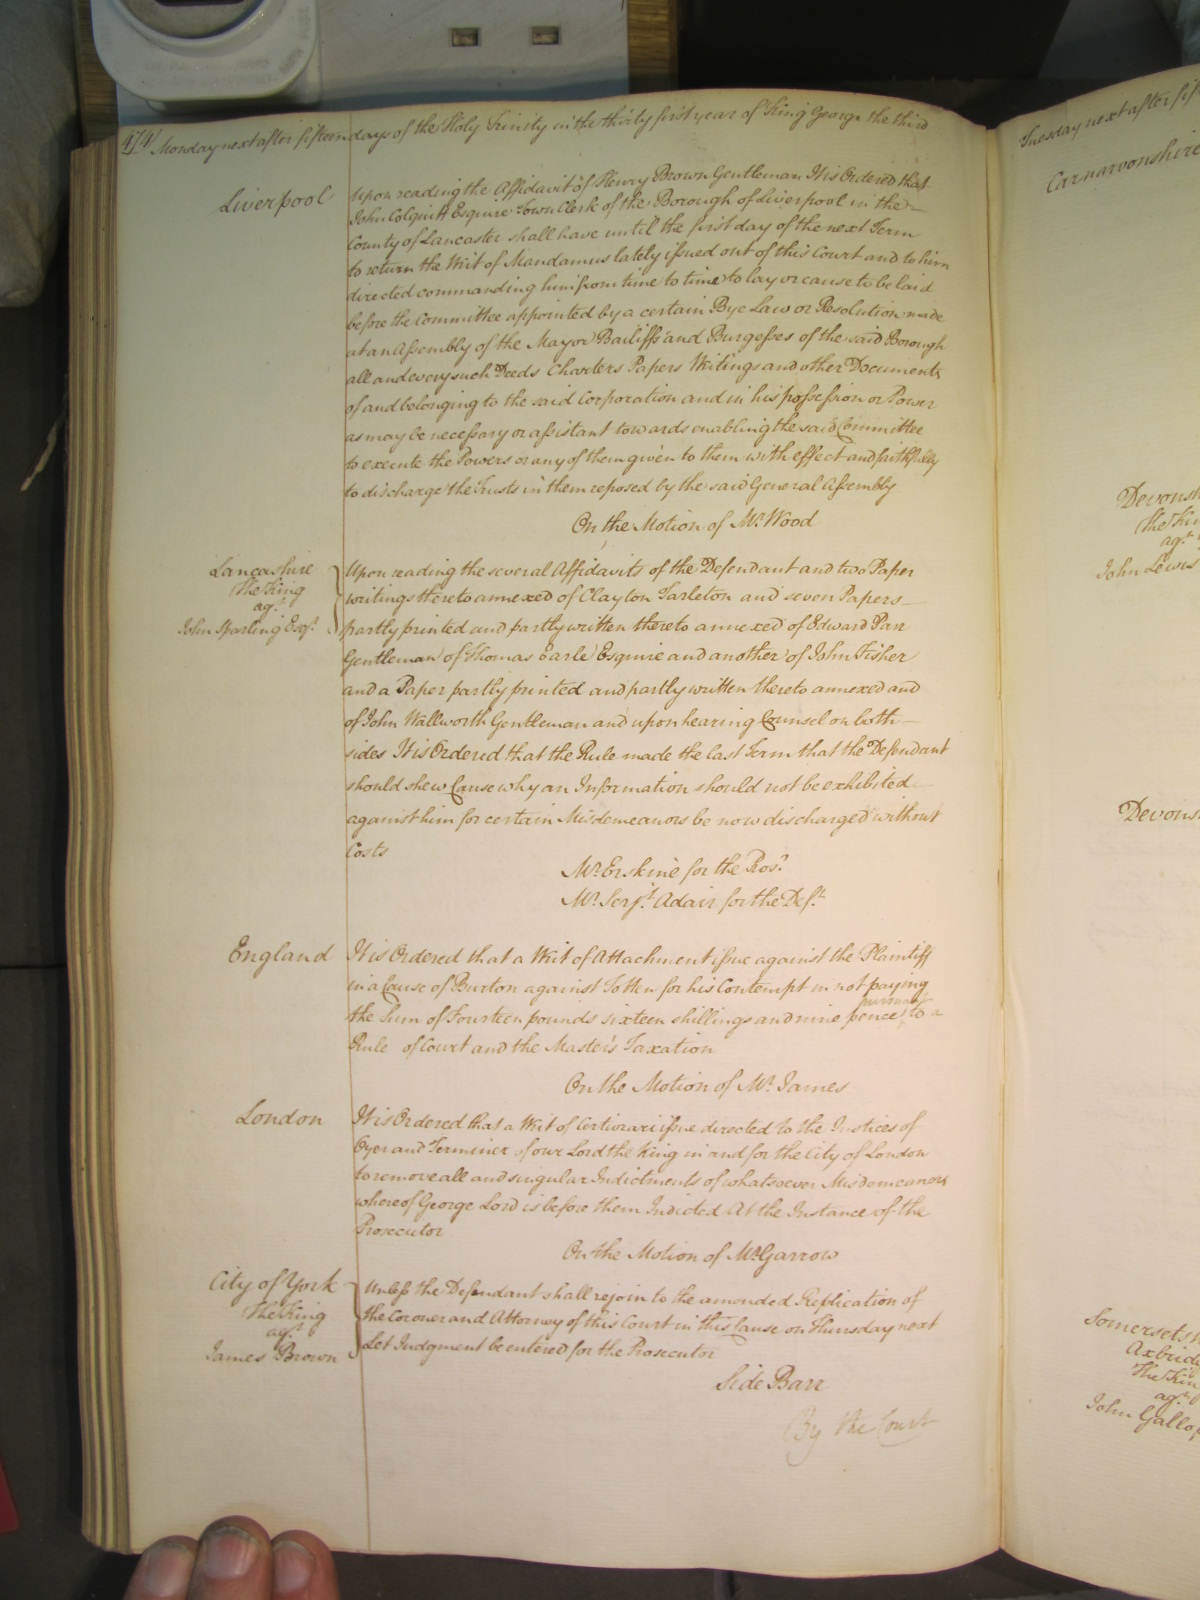 474 Monday next after fifteen days of the Holy Trinity in the thirty first year of King George the third
Liverpool
Upon reading the Affidavit of Henry Brown Gentleman It is Ordered that
John Colquitt Esquire Town Clerk of the Borough of Liverpool in the
County of Lancaster shall have until the first day of the next Term
to return the Writ of Mandamus lately issued out of this Court and to him
directed commanding him from time to time to lay or cause to be laid
before the Committee appointed by a certain Bye Law or Resolution made
at an Assembly of the Mayor Bailiffs and Burgesses of the said Borough
all and every such Deeds Charters Papers Writings and other Documents
of and belonging to the said Corporation and in his possession or Power
as may be necessary or assistant towards enabling the said Committee
to execute the Powers or any of them given to them with effect and faithfully
to discharge the Trusts in them reposed by the said General Assembly
On the Motion of Mr. Wood
Lancashire
The King
agt.
John Sparling Esqr.
Upon reading the several Affidavits of the Defendant and two Paper
writings thereto annexed of Clayton Tarleton and seven Papers
partly printed and partly written thereto annexed of Edward Parr
Gentleman of Thomas Earle Esquire and another of John Fisher
and a Paper partly printed and partly written thereto annexed and
of John Wallworth Gentleman and upon hearing Counsel on both
sides It is Ordered that the Rule made the last Term that the Defendant
should shew Cause why an Information should not be exhibited
against him for certain Misdemeanors be now discharged without
Costs
Mr. Erskine for the Pros.
Mr. Serjt. Adair for the Deft.
England
It is Ordered that a Writ of Attachment issue against the Plaintiff
in a Cause of Burton against Totten for his Contempt in not paying
the Sum of Fourteen pounds sixteen shillings and nine pence pursuant to a
Rule of Court and the Master's Taxation
On the Motion of Mr. James
London
It is Ordered that a Writ of Certiorari issue directed to the Justices of
Oyer and Terminer of our Lord the King in and for the City of London
to remove all and singular Indictments of whatsoever Misdemeanors
whereof George Lord is before them Indicted At the Instance of the
Prosecutor
On the Motion of Mr. Garrow
City of York
The King
agt.
James Brown
Unless the Defendant shall rejoin to the amended Replication of
the Coroner and Attorney of this Court in this Cause on Thursday next
Let Judgment be entered for the Prosecutor
Side Barr
By the Court
Tuesday next after
Carnarvonshire
John Lewis
Axbridge
agt.